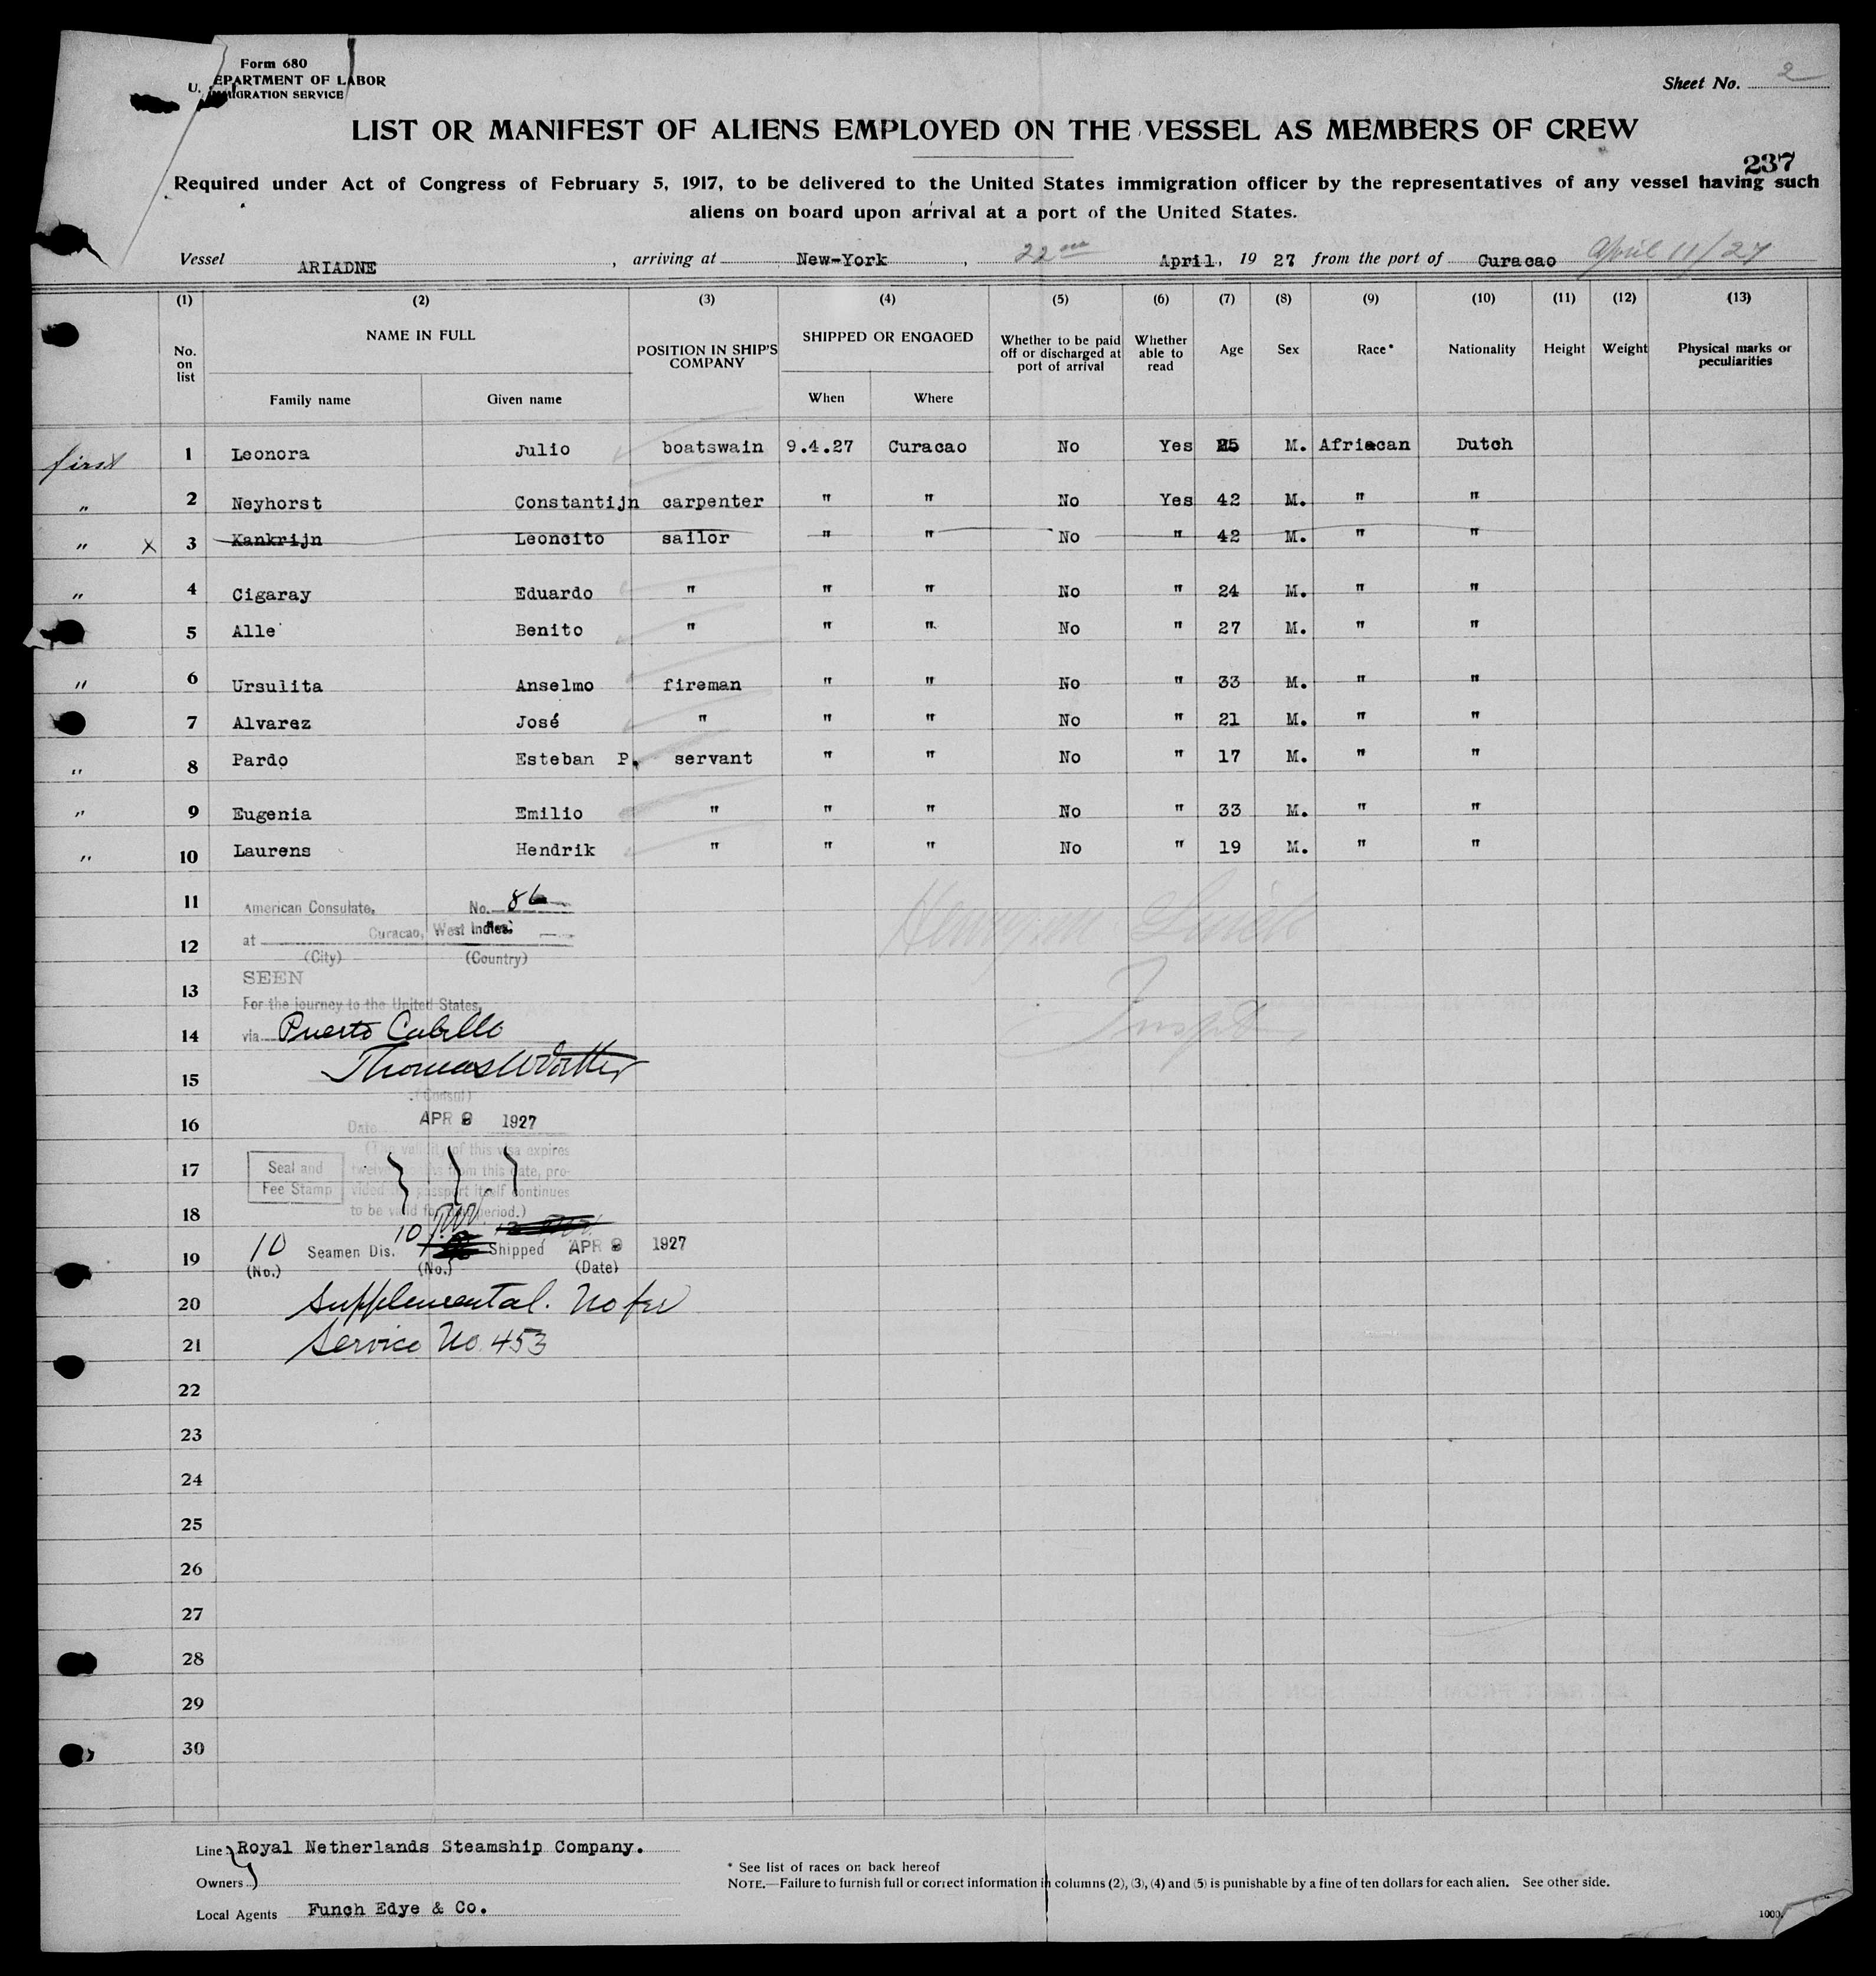 Form 680
U. DEPARTMENT OF LABOR
IMMIGRATION SERVICE
Sheet No. 2
LIST OR MANIFEST OF ALIENS EMPLOYED ON THE VESSEL AS MEMBERS OF CREW
237
Required under Act of Congress of February 5, 1917, to be delivered to the United States immigration officer by the representatives of any vessel having such
aliens on board upon arrival at a port of the United States.
Vessel ARIADNE, arriving at New-York, 22nd April, 1927 from the port of Curacao April 11/27
(1) (2) (3) (4) (5) (6) (7) (8) (9) (10) (11) (12) (13)
No. on list NAME IN FULL POSITION IN SHIP'S COMPANY SHIPPED OR ENGAGED Whether to be paid off or discharged at port of arrival Whether able to read Age Sex Race* Nationality Height Weight Physical marks or peculiarities
Family name Given name When Where
first 1 Leonora Julio boatswain 9.4.27 Curacao No Yes 25 M. African Dutch
" 2 Neyhorst Constantijn carpenter " " No Yes 42 M. " "
" X 3 Kankrijn Leoncito sailor " " No " 42 M. " "
" 4 Cigaray Eduardo " " " No " 24 M. " "
5 Alle Benito " " " No " 27 M. " "
" 6 Ursulita Anselmo fireman " " No " 33 M. " "
7 Alvarez José " " " No " 21 M. " "
" 8 Pardo Esteban P. servant " " No " 17 M. " "
" 9 Eugenia Emilio " " " No " 33 M. " "
" 10 Laurens Hendrik " " " No " 19 M. " "
11 American Consulate, No. 86
12 at Curacao, West Indies.
(City) (Country)
13 SEEN
For the journey to the United States,
14 via Puerto Cabello
15 Thomas W
(Consul)
16 Date APR 8 1927
(The validity of this visa expires
17 Seal and Fee Stamp twelve months from this date, pro-
vided the passport itself continues
18 to be valid for that period.)
19 10 Seamen Dis. 10 Shipped APR 8 1927
(No.) (No.) (Date)
20 Supplemental. No fee
21 Service No. 453
22
23
24
25
26
27
28
29
30
Line Royal Netherlands Steamship Company.
Owners
Local Agents Funch Edye & Co.
* See list of races on back hereof
NOTE.—Failure to furnish full or correct information in columns (2), (3), (4) and (5) is punishable by a fine of ten dollars for each alien. See other side.
1000.